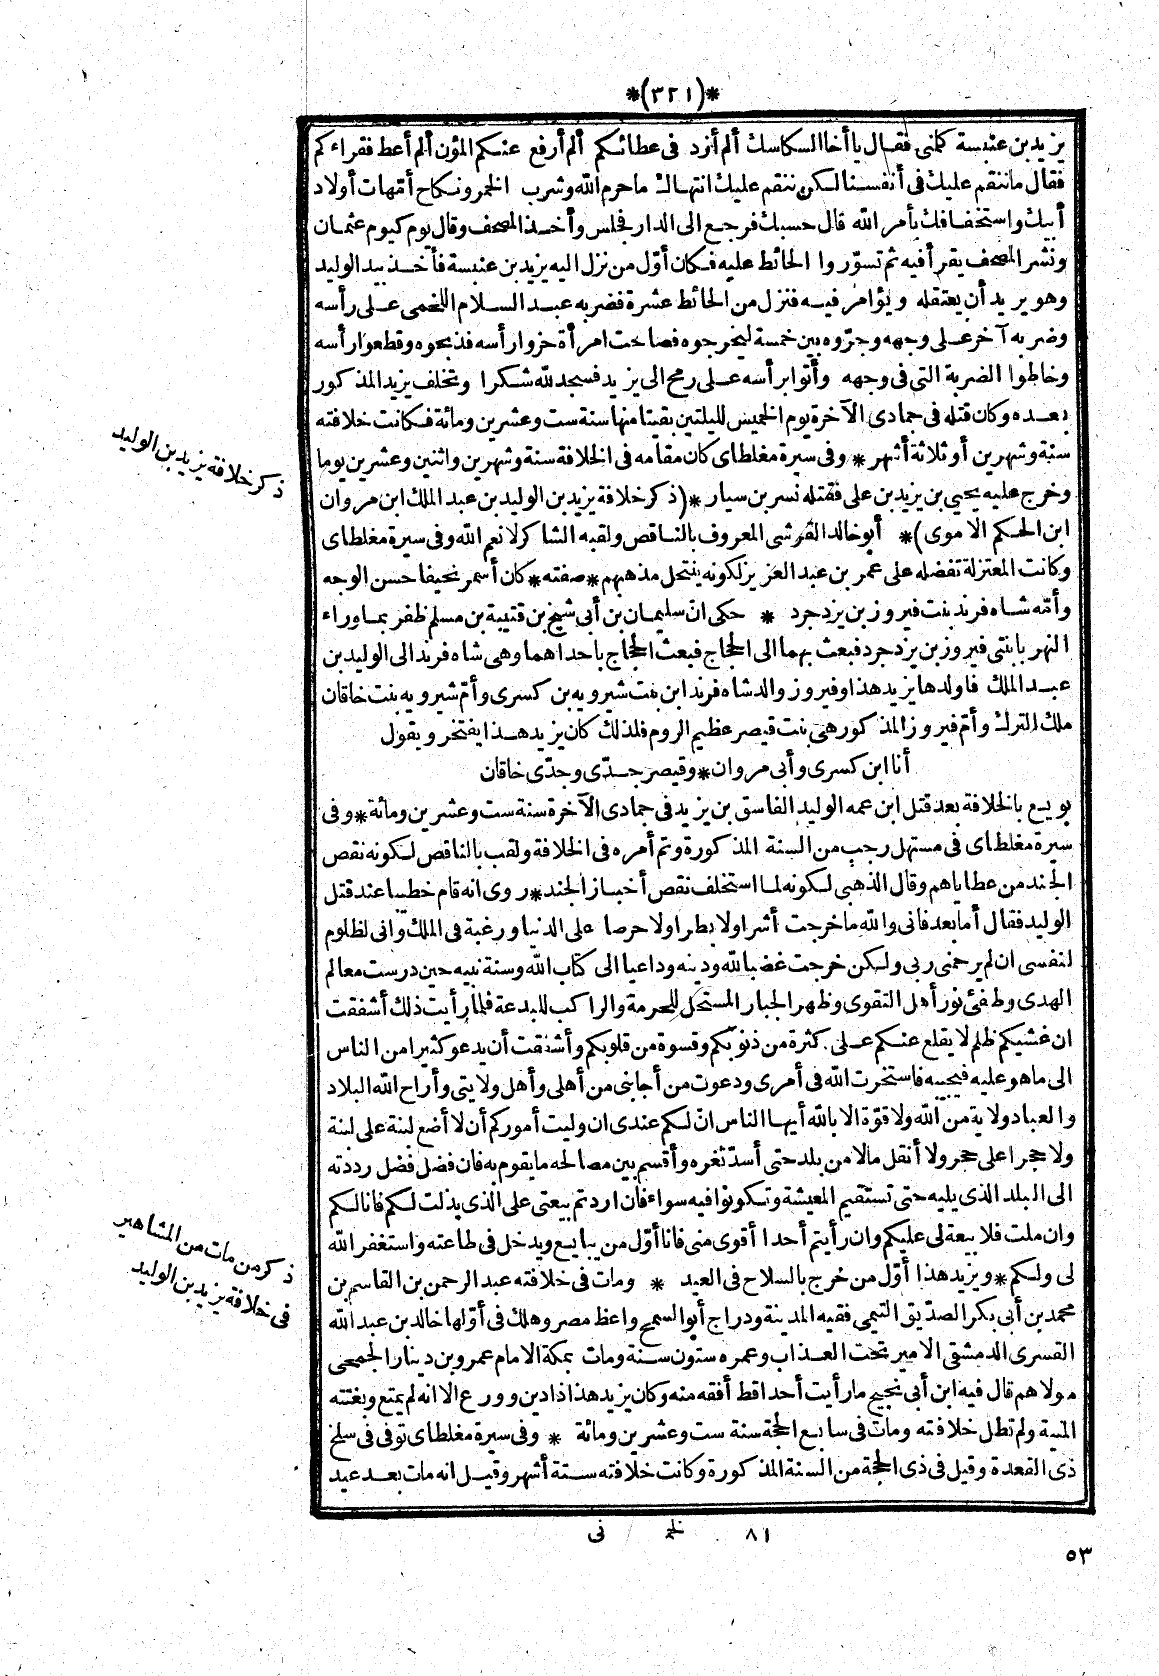 *(٣٢١)*
يزيد بن عنبسة كلمنى فقال يا أخا السكاسك ألم أزد فى عطائكم ألم أرفع عنكم المؤن ألم أعط فقراءكم
فقال ما ننقم عليك فى أنفسنا لكن ننقم عليك انتهاك ما حرم الله وشرب الخمر ونكاح أمّهات أولاد
أبيك واستخفافك بأمر الله قال حسبك فرجع الى الدار فجلس وأخذ المصحف وقال يوم كيوم عثمان
ونشر المصحف يقرأ فيه ثم تسوّروا الحائط عليه فكان أوّل من نزل اليه يزيد بن عنبسة فأخذ بيد الوليد
وهو يريد أن يعتقله ويؤامر فيه فنزل من الحائط عشرة فضربه عبد السلام اللخمى على رأسه
وضربه آخر على وجهه وجرّوه بين خمسة ليخرجوه فصاحت امرأة خزوا رأسه فذبحوه وقطعوا رأسه
وخاطوا الضربة التى فى وجهه وأتوا برأسه على رمح الى يزيد فسجد لله شكرا وتخلف يزيد المذكور
بعده وكان قتله فى جمادى الآخرة يوم الخميس لليلتين بقيتا منها سنة ست وعشرين ومائة فكانت خلافته
سنة وشهرين أو ثلاثة أشهر * وفى سيرة مغلطاى كان مقامه فى الخلافة سنة وشهرين واثنين وعشرين يوما
وخرج عليه يحيى بن يزيد بن على فقتله نسر بن سيار *(ذكر خلافة يزيد بن الوليد بن عبد الملك ابن مروان
ابن الحكم الاموى)* أبو خالد القرشى المعروف بالناقص ولقبه الشاكر لانعم الله وفى سيرة مغلطاى
وكانت المعتزلة تفضله على عمر بن عبد العزيز لكونه ينتحل مذهبهم * صفته * كان أسمر نحيفا حسن الوجه
وأمّه شاه فرند بنت فيروز بن يزدجرد * حكى انّ سليمان بن أبى شيخ بن قتيبة بن مسلم ظفر بما وراء
النهر بابنتى فيروز بن يزدجرد فبعث بهما الى الحجاج فبعث الحجاج باحداهما وهى شاه فرند الى الوليد بن
عبد الملك فاولدها يزيد هذا وفيروز والد شاه فرند ابن بنت شيرويه بن كسرى وأمّ شيرويه بنت خاقان
ملك الترك وأمّ فيروز المذكور هى بنت قيصر عظيم الروم فلذلك كان يزيد هذا يفتخر ويقول
أنا ابن كسرى وأبى مروان * وقيصر جدّى وجدّى خاقان
بويع بالخلافة بعد قتل ابن عمه الوليد الفاسق بن يزيد فى جمادى الآخرة سنة ست وعشرين ومائة * وفى
سيرة مغلطاى فى مستهل رجب من السنة المذكورة وتم أمره فى الخلافة ولقب بالناقص لكونه نقص
الجند من عطاياهم وقال الذهبى لكونه لما استخلف نقص أخباز الجند * روى انه قام خطيبا عند قتل
الوليد فقال أما بعد فانى والله ما خرجت أشرا ولا بطرا ولا حرصا على الدنيا ورغبة فى الملك وانى لظلوم
لنفسى ان لم يرحمنى ربى ولكن خرجت غضبا لله ودينه وداعيا الى كتاب الله وسنة نبيه حين درست معالم
الهدى وطفئ نور أهل التقوى وظهر الجبار المستحل للحرمة والراكب للبدعة فلما رأيت ذلك أشفقت
ان غشيكم ظلم لا يقلع عنكم على كثرة من ذنوبكم وقسوة من قلوبكم وأشفقت أن يدعو كثيرا من الناس
الى ما هو عليه فيجيبه فاستخرت الله فى أمرى ودعوت من أجابنى من أهلى وأهل ولايتى وأراح الله البلاد
والعباد ولاية من الله ولا قوّة الا بالله أيها الناس انّ لكم عندى ان وليت أموركم أن لا أضع لبنة على لبنة
ولا حجرا على حجر ولا أنقل مالا من بلد حتى أسدّ ثغره وأقسم بين مصالحه ما يقوم به فان فضل فضل رددته
الى البلد الذى يليه حتى تستقيم المعيشة وتكونوا فيه سواء فان اردتم بيعتى على الذى بذلت لكم فانا لكم
وان ملت فلا بيعة لى عليكم وان رأيتم أحدا أقوى منى فانا أوّل من يبايع ويدخل فى طاعته واستغفر الله
لى ولكم * ويزيد هذا أوّل من خرج بالسلاح فى العيد * ومات فى خلافته عبد الرحمن بن القاسم بن
محمد بن أبى بكر الصدّيق التيمى فقيه المدينة ودراج أبو السمح واعظ مصر وهلك فى أوّلها خالد بن عبد الله
القسرى الدمشقى الامير تحت العذاب وعمره ستون سنة ومات بمكة الامام عمرو بن دينار الجمحى
مولاهم قال فيه ابن أبى نجيح ما رأيت أحدا قط أفقه منه وكان يزيد هذا ذا دين وورع الا انه لم يمتع وبغتته
المنية ولم تطل خلافته ومات فى سابع الحجة سنة ست وعشرين ومائة * وفى سيرة مغلطاى توفى فى سلخ
ذى القعدة وقيل فى ذى الحجة من السنة المذكورة وكانت خلافته ستة أشهر وقيل انه مات بعد عيد
ذكر خلافة يزيد بن الوليد
ذكر من مات من المشاهير
فى خلافة يزيد بن الوليد
٨١ نى
٥٣